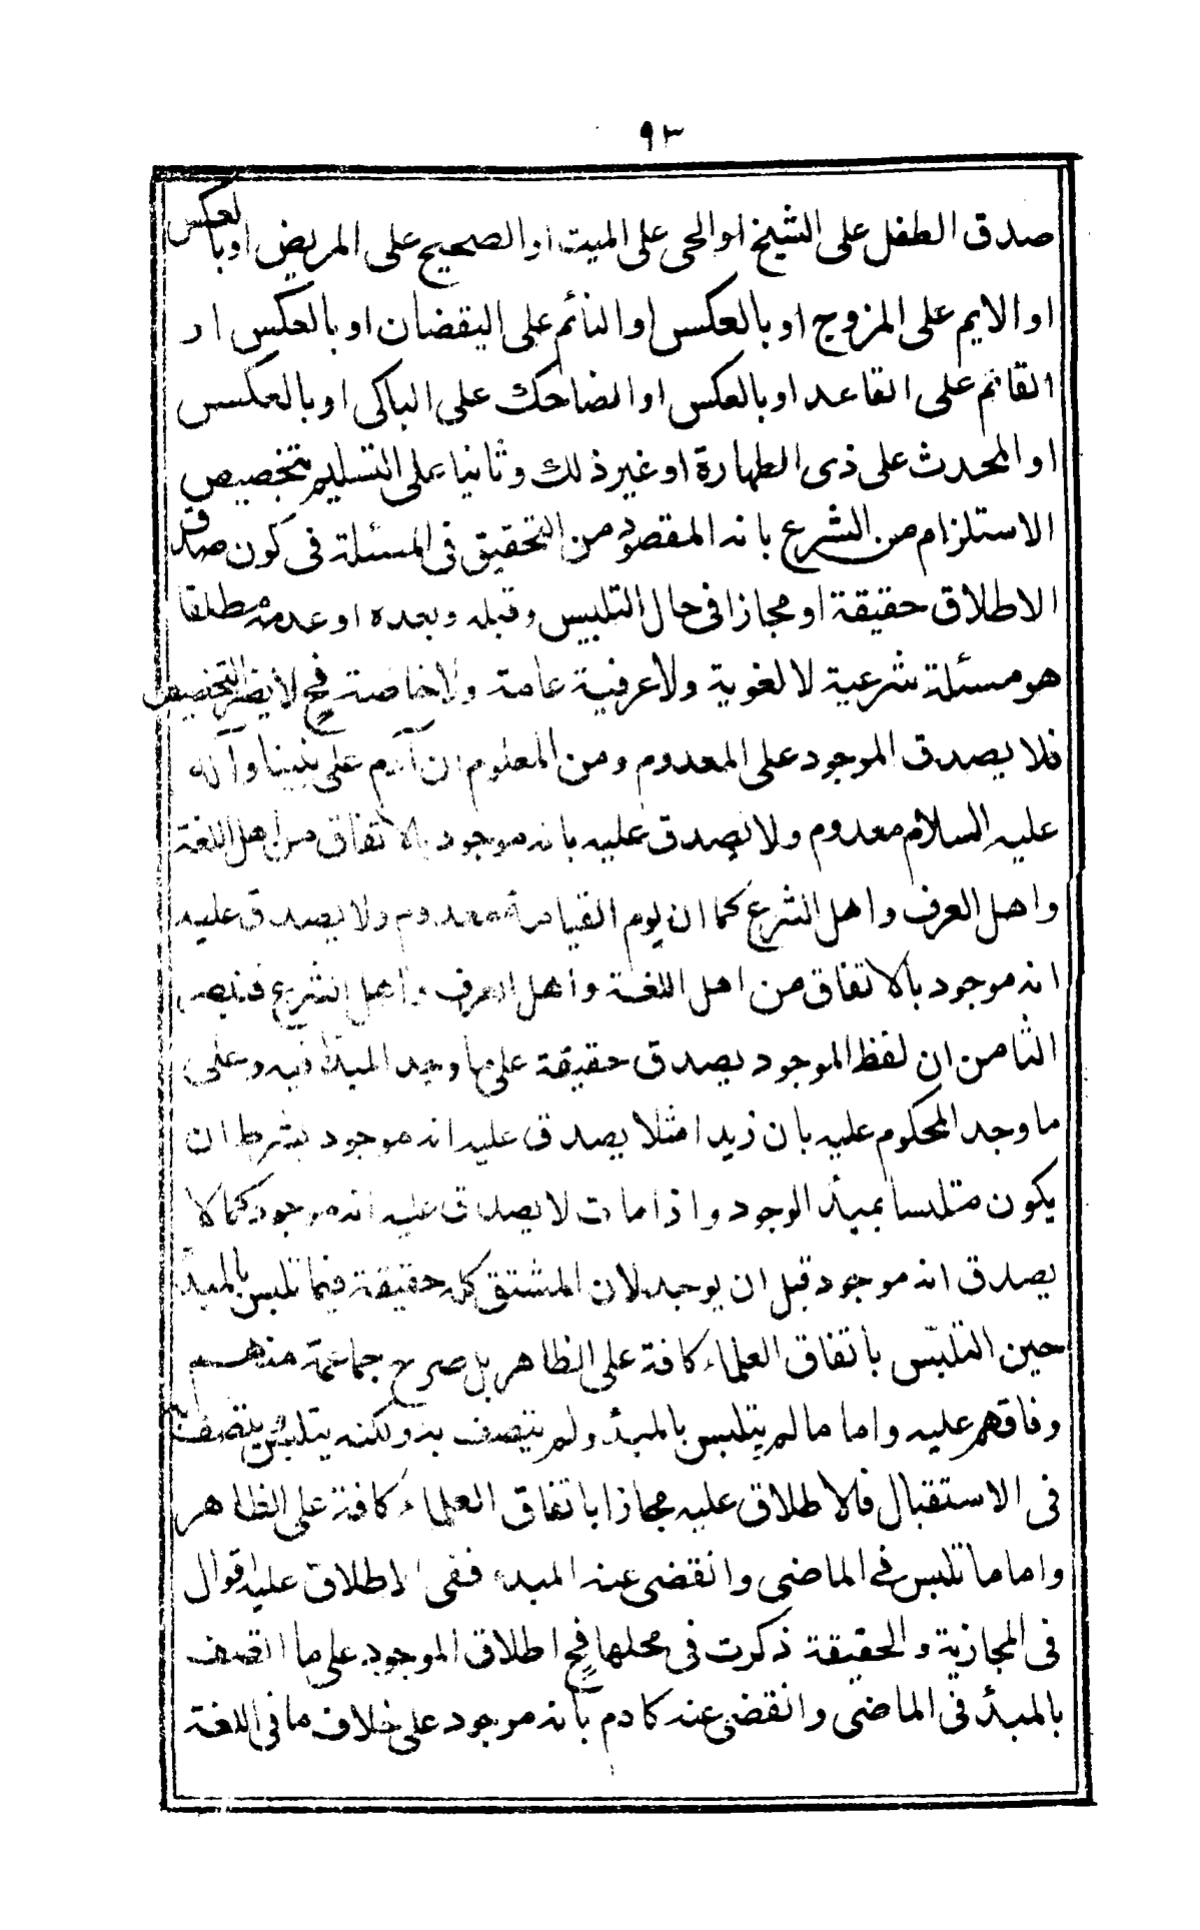 ٩٣
صدق الطفل على الشيخ او الحى على الميت او الصحيح على المريض او بالعكس
او الايم على المزوج او بالعكس او النائم على اليقضان او بالعكس او
القائم على القاعد او بالعكس او الضاحك على الباكى او بالعكس
او المحدث على ذى الطهارة او غير ذلك وثانيا على التسليم بتخصيص
الاستلزام من الشرع بانه المقصود من التحقيق فى المسئلة فى كون صدق
الاطلاق حقيقة او مجازا فى حال التلبس وقبله وبعده او عدمه مطلقا
هو مسئلة شرعية لا لغوية ولا عرفية عامة ولا خاصة فح لا يضر التخصيص
فلا يصدق الموجود على المعدوم ومن المعلوم ان آدم على نبينا وآله
عليه السلام معدوم ولا يصدق عليه بانه موجود بالاتفاق من اهل اللغة
واهل العرف واهل الشرع كما ان يوم القيامة معدوم ولا يصدق عليه
انه موجود بالاتفاق من اهل اللغة واهل العرف واهل الشرع
الثامن ان لفظ الموجود يصدق حقيقة على ما وجد المبدأ فيه وعلى
ما وجد المحكوم عليه بان زيدا مثلا يصدق عليه انه موجود بشرط ان
يكون متلبسا بمبدأ الوجود واذا مات لا يصدق عليه انه موجود كما لا
يصدق انه موجود قبل ان يوجد لان المشتق كله حقيقة فيما تلبس بالمبدأ
حين التلبّس باتفاق العلماء كافة على الظاهر بل صرح جماعة منهم
وفاقهم عليه واما ما لم يتلبس بالمبدأ ولم يتصف به ولكنه يتلبس ويتصف به
فى الاستقبال فالاطلاق عليه مجازا باتفاق العلماء كافة على الظاهر
واما ما تلبس فى الماضى وانقضى عنه المبدء ففى الاطلاق عليه اقوال
فى المجازية والحقيقة ذكرت فى محلها فح اطلاق الموجود على ما اتصف
بالمبدأ فى الماضى وانقضى عنه كادم بانه موجود على خلاف ما فى اللغة